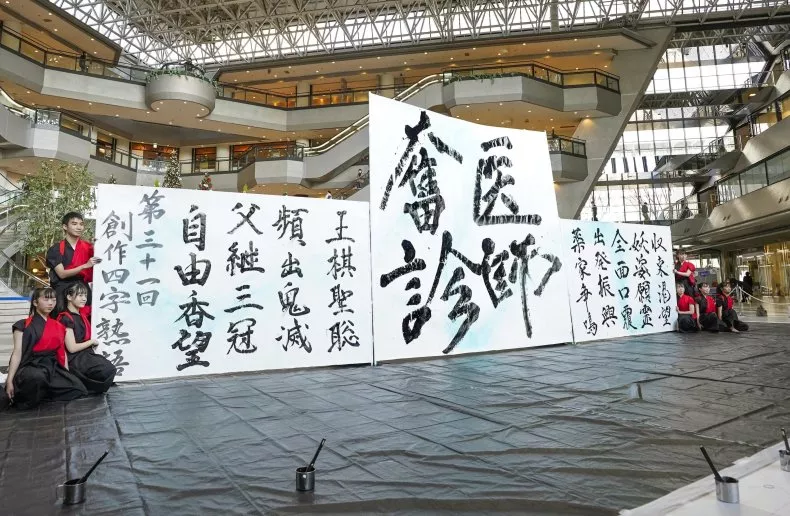 収束渇望
妖姿願
全面口覆
出発振興
薬家争鳴
医師
奮診
王棋聖聡
頻出鬼滅
父継三冠
自由香望
第三十一回
創作四字熟語